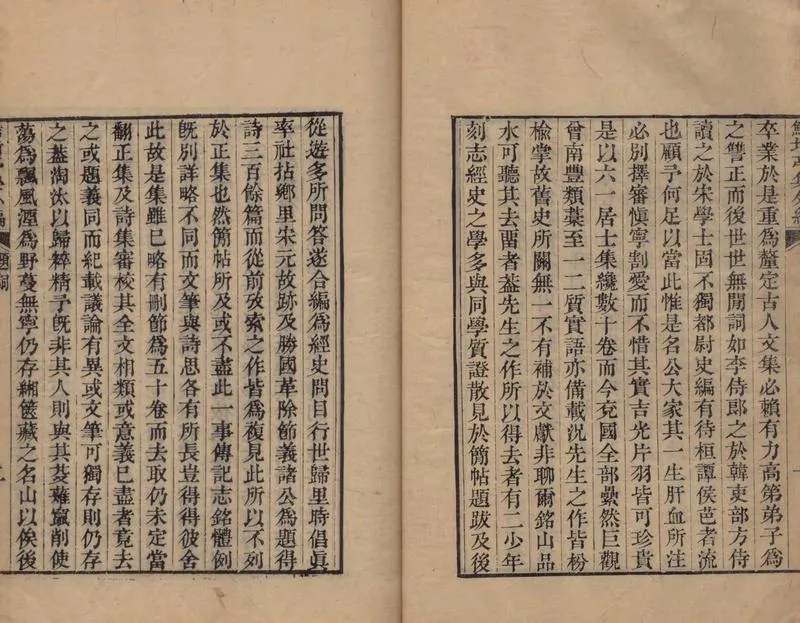 卒業於是重為釐定古人文集必賴有力高第弟子為
之讐正而後世世無閒詞如李侍郎之於韓吏部方侍
讀之於宋學士固不獨都尉史編有待桓譚侯芭者流
也顧予何足以當此惟是名公大家其一生肝血所注
必別擇審愼寧割愛而不惜其實吉光片羽皆可珍貴
是以六一居士集纔數十卷而今兗國全部纍然巨觀
曾南豐類稾至一二質實語亦備載況先生之作皆枌
榆掌故舊史所關無一不有補於文獻非聊爾銘山品
水可聽其去畱者葢先生之作所以得去者有二少年
刻志經史之學多與同學質證散見於簡帖題跋及後
從遊多所問答遂合編為經史問目行世歸里時倡眞
率社拈鄉里宋元故跡及勝國革除節義諸公為題得
詩三百餘篇而從前攷索之作皆為複見此所以不列
於正集也然簡帖所及或不盡此一事傳記志銘體例
旣別詳略不同而文筆與詩思各有所長豈得得彼舍
此故是集雖已略有刪節為五十卷而去取仍未定當
翻正集及詩集審校其全文相類或意義已盡者竟去
之或題義同而紀載議論有異或文筆可獨存則仍存
之葢淘汰以歸粹精予旣非其人則與其芟薙竄削使
蕩為飄風湮為野蔓無寧仍存緗篋藏之名山以俟後
題詞